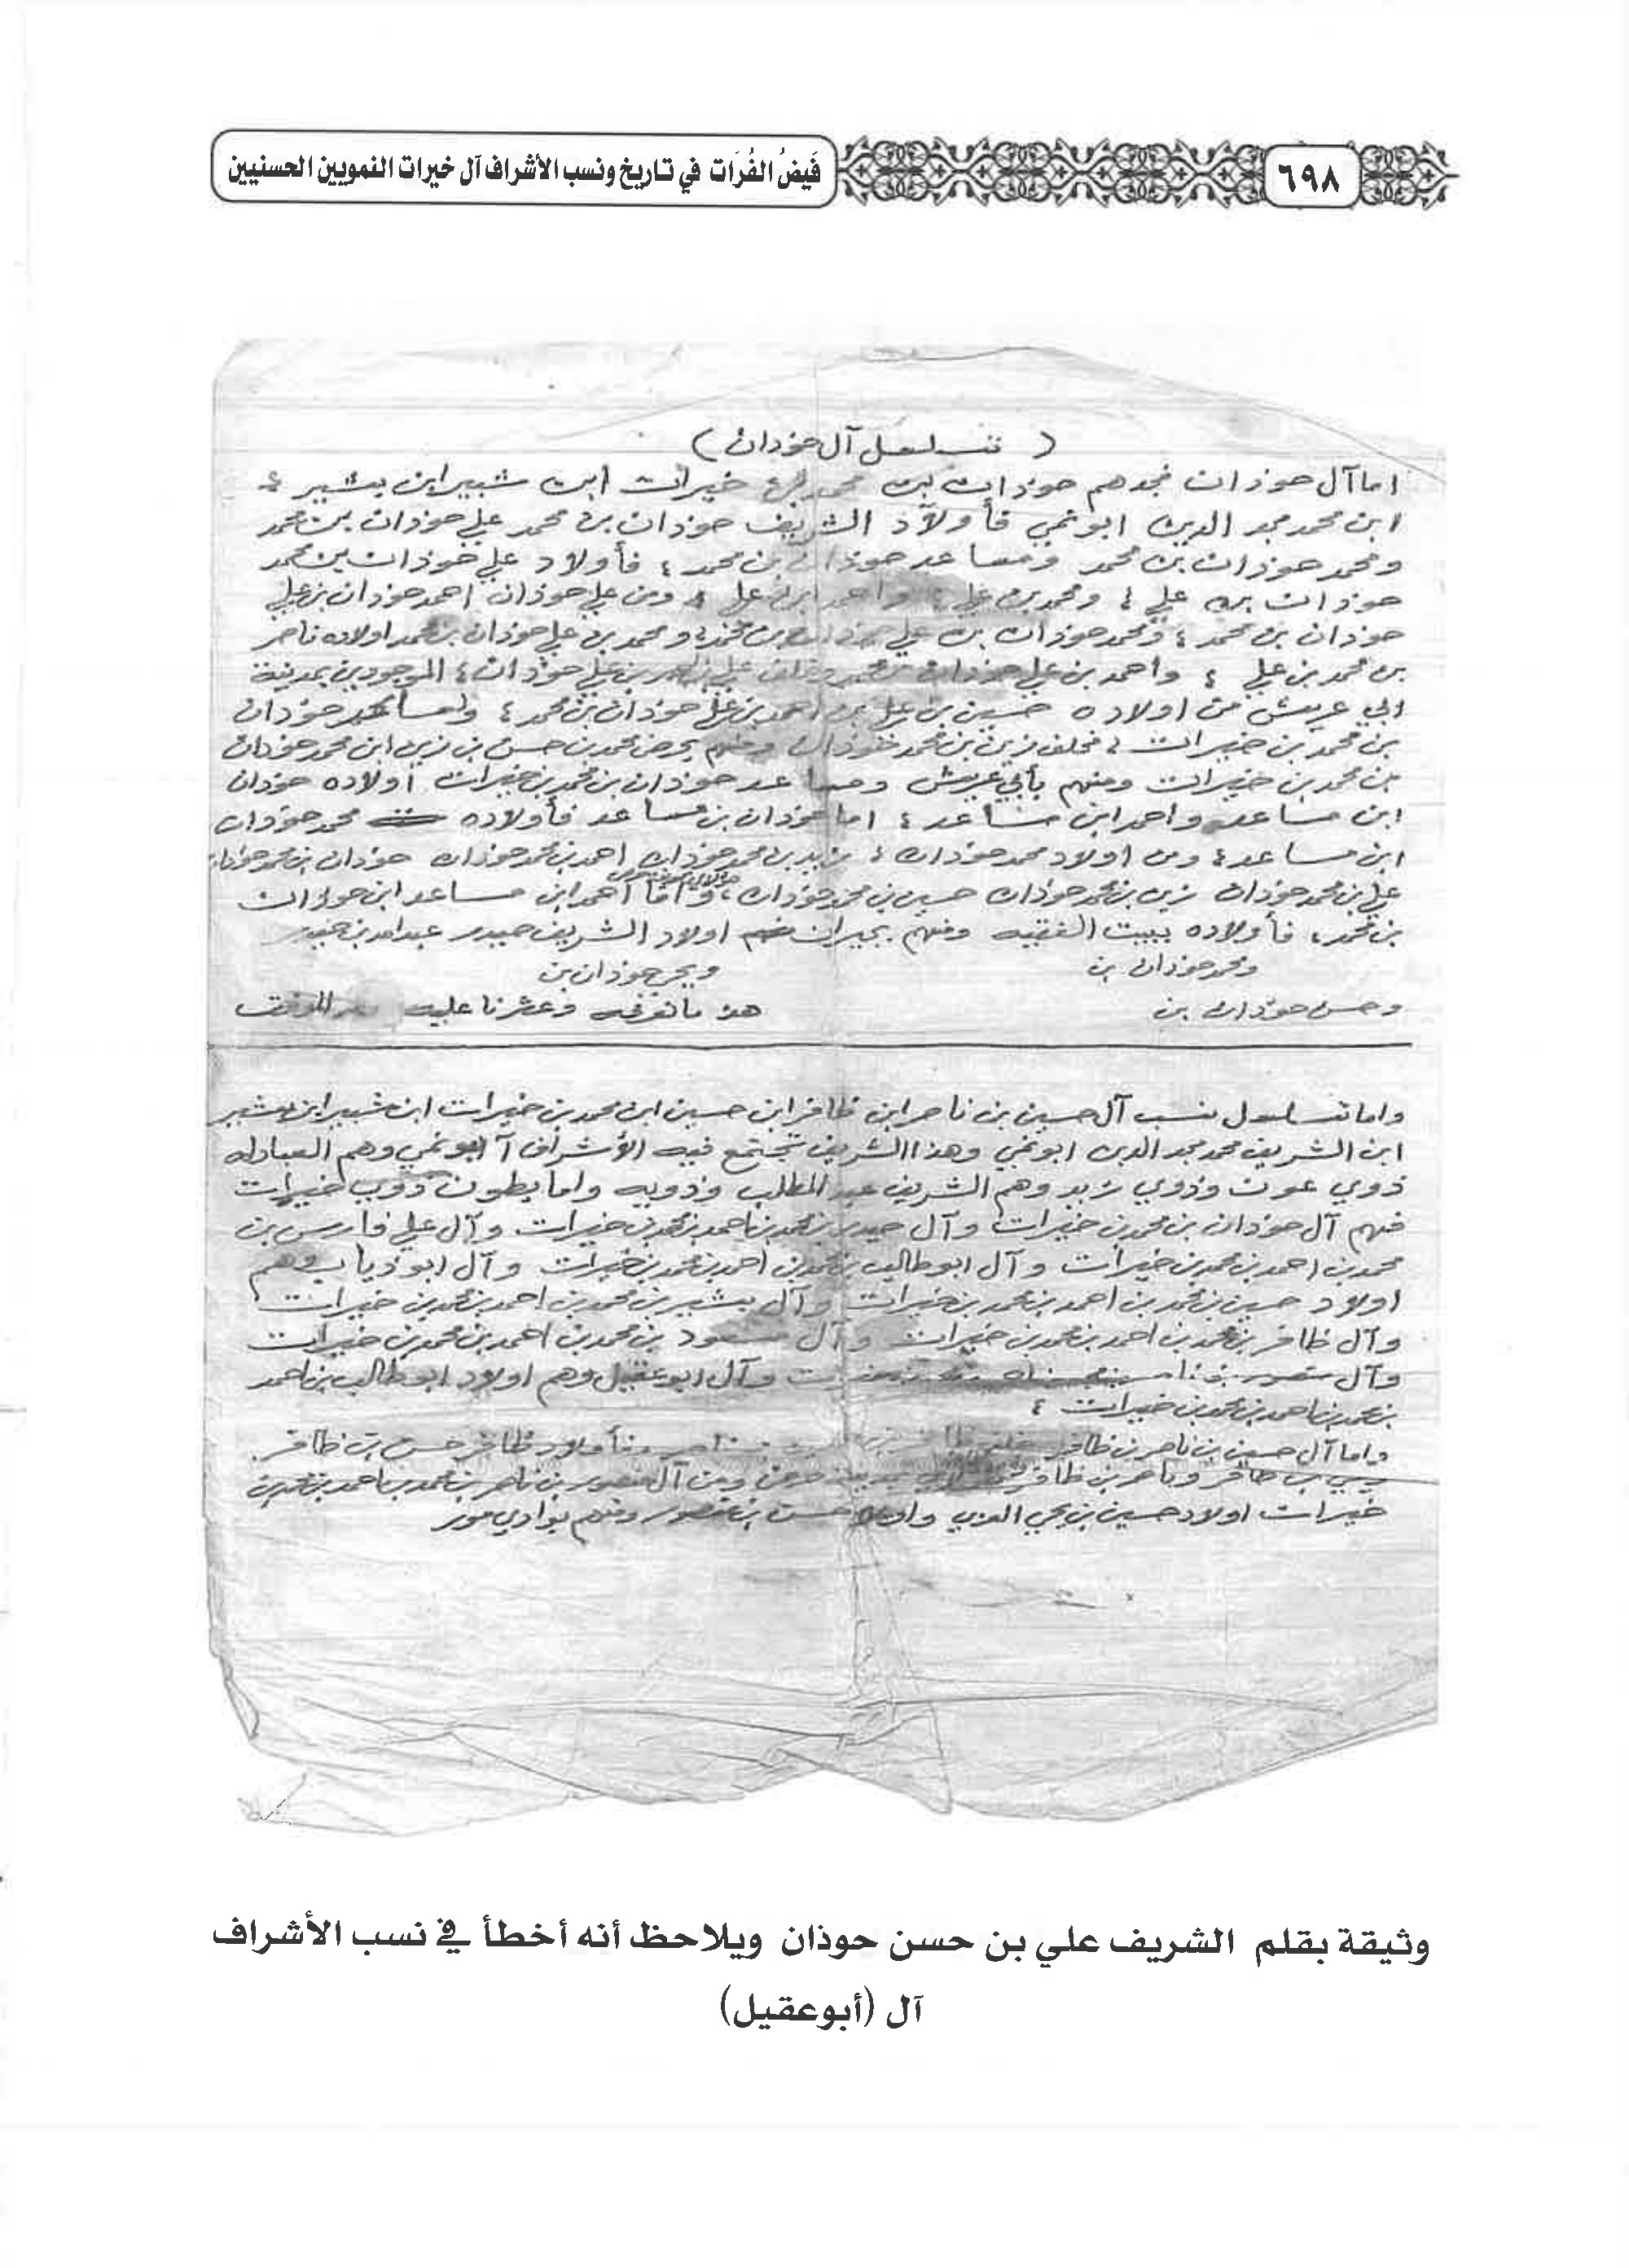 فَيضُ الفُرَات في تاريخ ونسب الأشراف آل خيرات النمويين الحسنيين
٦٩٨
( تسلسل آل حوذان )
اما آل حوذان فجدهم حوذان بن محمد بن خيرات ابن شبير ابن بشير
ابن محمد مجد الدين ابونمي فأولاد الشريف حوذان بن محمد علي حوذان بن محمد
ومحمد حوذان بن محمد ومساعد حوذان بن محمد ، فأولاد علي حوذان بن محمد
حوذان بن علي ، ومحمد بن علي ، واحمد ابن علي ، ومن علي حوذان احمد حوذان بن علي
حوذان بن محمد ، ومحمد حوذان بن علي حوذان بن محمد ، ومحمد بن علي حوذان بن محمد اولاده ناصر
بن محمد بن علي ، واحمد بن علي حوذان بن علي حوذان ، الموجودين بمدينة
ابي عريش من اولاده حسين بن علي بن احمد بن علي حوذان بن محمد ، ومساعد حوذان
بن محمد بن خيرات ، فخلف زين بن محمد حوذان ومنهم محمد بن حسن بن زين ابن محمد حوذان
بن محمد بن خيرات ومنهم بأبي عريش ومساعد حوذان بن محمد بن خيرات اولاده حوذان
ابن مساعد واحمد ابن مساعد ، اما حوذان بن مساعد فأولاده محمد حوذان
ابن مساعد ، ومن اولاد محمد حوذان ، زيد بن محمد حوذان احمد بن محمد حوذان حوذان بن محمد حوذان
علي بن محمد حوذان زين بن محمد حوذان حسين بن محمد حوذان ، واما احمد ابن مساعد ابن حوذان
بن محمد ، فأولاده ببيت الفقيه ومنهم بجيزان اولاد الشريف حيدر عبدالله بن حيدر
ومحمد حوذان بن ويحي حوذان بن
وحسن حوذان بن هذ ما نعرفه وعثرنا عليه الموفق
واما تسلسل نسب آل حسين بن ناصر ابن ظافر ابن حسين ابن محمد بن خيرات ابن شبير ابن بشير
ابن الشريف محمد مجد الدين ابونمي وهذا الشريف تجتمع فيه الأشراف آ ابونمي وهم العبادله
ذوي عون وذوي زيد وهم الشريف عبد المطلب وذويه واما بطون ذوي خيرات
فهم آل حوذان بن محمد بن خيرات وآل حيدر بن محمد بن احمد بن محمد بن خيرات وآل علي فارس بن
محمد بن احمد بن محمد بن خيرات وآل ابوطالب بن محمد بن احمد بن محمد بن خيرات وآل ابو ذياب وهم
اولاد حسين بن محمد بن احمد بن محمد بن خيرات وآل بشير بن محمد بن احمد بن محمد بن خيرات
وآل ظافر بن محمد بن احمد بن محمد بن خيرات وآل مسعود بن محمد بن احمد بن محمد بن خيرات
وآل منصور بن وآل ابوعقيل وهم اولاد ابوطالب بن احمد
بن محمد بن احمد بن محمد بن خيرات ،
واما آل حسين بن ناصر بن ظافر بن ناصر فأولاد ظافر حسن بن ظافر
ويحي بن ظافر وناصر بن ظافر ومن آل منصور بن ناصر بن محمد بن احمد بن محمد بن
خيرات اولاد حسين بن يحي واولاد حسن بن منصور ومنهم بوادي مور
وثيقة بقلم الشريف علي بن حسن حوذان ويلاحظ أنه أخطأ في نسب الأشراف
آل (أبوعقيل)